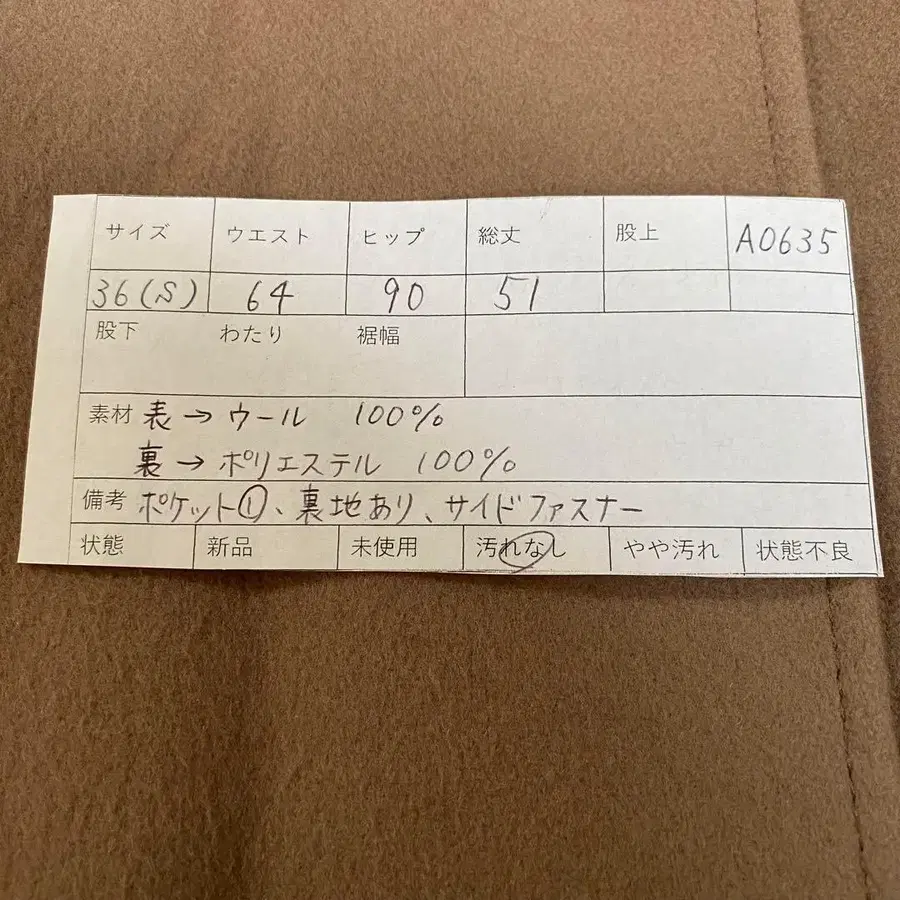 サイズ ウエスト ヒップ 総丈 股上 A0635
36(S) 64 90 51
股下 わたり 裾幅
素材 表→ウール 100%
裏→ポリエステル 100%
備考 ポケット①、裏地あり、サイドファスナー
状態 新品 未使用 汚れなし やや汚れ 状態不良